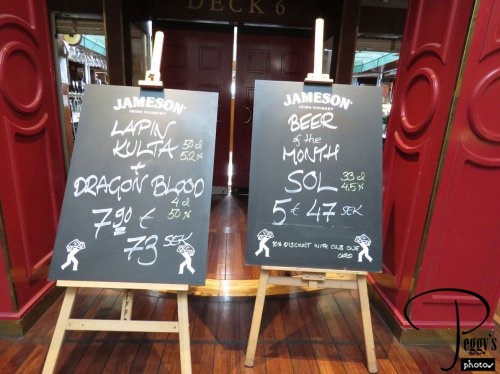 DECK 6
JAMESON
IRISH WHISKEY
LAPIN
KULTA 50 cl
5,2 %
+
DRAGON BLOOD
4 cl
50 %
7,90 €
73 SEK
JAMESON
IRISH WHISKEY
BEER
of the
MONTH
SOL 33 cl
4,5 %
5 € 47 SEK
10% DISCOUNT WITH CLUB ONE
CARD
Peggy's
photos